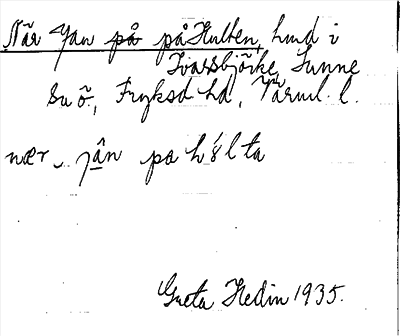 När Jan på på Hulten, hmd i
Ivarsbjörke, Sunne
su ö, Fryksd hd, Värml. l.
nær jân pa hʹɷlta
Greta Hedin 1935.